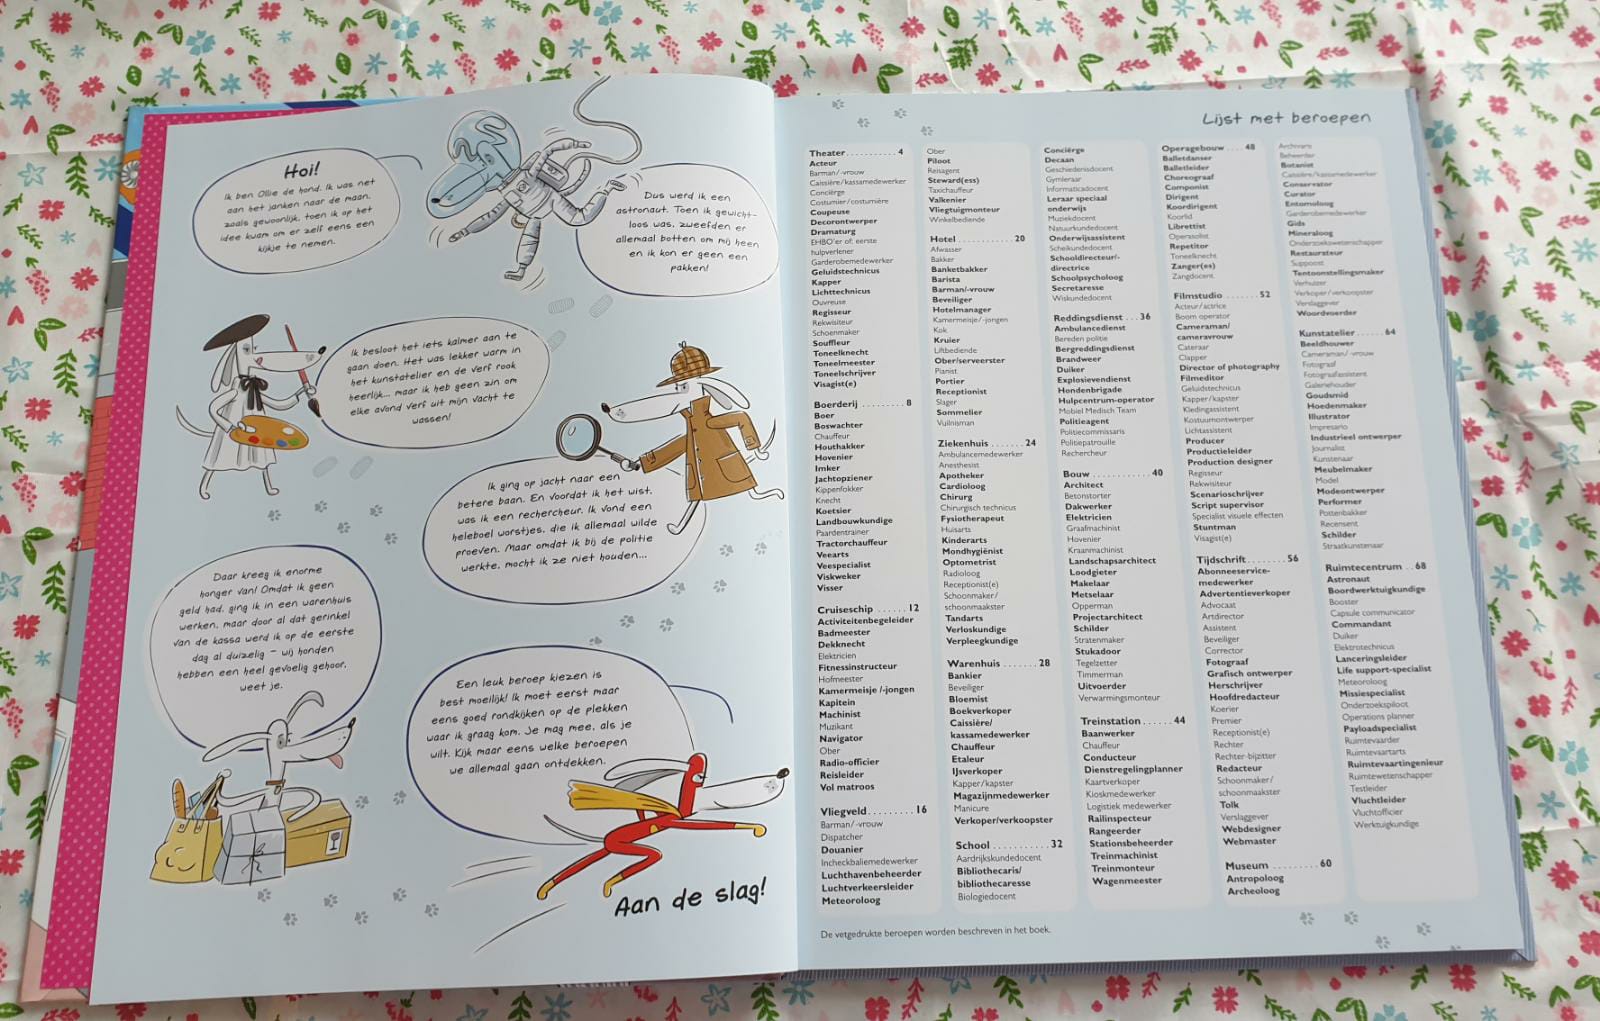 Hoi!
Ik ben Ollie de hond. Ik was net
aan het janken naar de maan,
zoals gewoonlijk, toen ik op het
idee kwam om er zelf eens een
kijkje te nemen.
Dus werd ik een
astronaut. Toen ik gewicht-
loos was, zweefden er
allemaal botten om mij heen
en ik kon er geen een
pakken!
Ik besloot het iets kalmer aan te
gaan doen. Het was lekker warm in
het kunstatelier en de verf rook
heerlijk... maar ik heb geen zin om
elke avond verf uit mijn vacht te
wassen!
Ik ging op jacht naar een
betere baan. En voordat ik het wist,
was ik een rechercheur. Ik vond een
heleboel worstjes, die ik allemaal wilde
proeven. Maar omdat ik bij de politie
werkte, mocht ik ze niet houden...
Daar kreeg ik enorme
honger van! Omdat ik geen
geld had, ging ik in een warenhuis
werken, maar door al dat gerinkel
van de kassa werd ik op de eerste
dag al duizelig – wij honden
hebben een heel gevoelig gehoor,
weet je.
Een leuk beroep kiezen is
best moeilijk! Ik moet eerst maar
eens goed rondkijken op de plekken
waar ik graag kom. Je mag mee, als je
wilt. Kijk maar eens welke beroepen
we allemaal gaan ontdekken.
Aan de slag!
Lijst met beroepen
Theater . . . . . . . . . . 4
Acteur
Barman/-vrouw
Caissière/kassamedewerker
Conciërge
Costumier/costumière
Coupeuse
Decorontwerper
Dramaturg
EHBO'er of: eerste
hulpverlener
Garderobemedewerker
Geluidstechnicus
Kapper
Lichttechnicus
Ouvreuse
Regisseur
Rekwisiteur
Schoenmaker
Souffleur
Toneelknecht
Toneelmeester
Toneelschrijver
Visagist(e)
Boerderij . . . . . . . . . 8
Boer
Boswachter
Chauffeur
Houthakker
Hovenier
Imker
Jachtopziener
Kippenfokker
Knecht
Koetsier
Landbouwkundige
Paardentrainer
Tractorchauffeur
Veearts
Veespecialist
Viskweker
Visser
Cruiseschip . . . . . . 12
Activiteitenbegeleider
Badmeester
Dekknecht
Elektricien
Fitnessinstructeur
Hofmeester
Kamermeisje /-jongen
Kapitein
Machinist
Muzikant
Navigator
Ober
Radio-officier
Reisleider
Vol matroos
Vliegveld . . . . . . . . . 16
Barman/ -vrouw
Dispatcher
Douanier
Incheckbaliemedewerker
Luchthavenbeheerder
Luchtverkeersleider
Meteoroloog
Ober
Piloot
Reisagent
Steward(ess)
Taxichauffeur
Valkenier
Vliegtuigmonteur
Winkelbediende
Hotel . . . . . . . . . . . . 20
Afwasser
Bakker
Banketbakker
Barista
Barman/-vrouw
Beveiliger
Hotelmanager
Kamermeisje/ -jongen
Kok
Kruier
Liftbediende
Ober/serveerster
Pianist
Portier
Receptionist
Slager
Sommelier
Vuilnisman
Ziekenhuis . . . . . . . 24
Ambulancemedewerker
Anesthesist
Apotheker
Cardioloog
Chirurg
Chirurgisch technicus
Fysiotherapeut
Huisarts
Kinderarts
Mondhygiënist
Optometrist
Radioloog
Receptionist(e)
Schoonmaker/
schoonmaakster
Tandarts
Verloskundige
Verpleegkundige
Warenhuis . . . . . . . 28
Bankier
Beveiliger
Bloemist
Boekverkoper
Caissière/
kassamedewerker
Chauffeur
Etaleur
IJsverkoper
Kapper/kapster
Magazijnmedewerker
Manicure
Verkoper/verkoopster
School . . . . . . . . . . . 32
Aardrijkskundedocent
Bibliothecaris/
bibliothecaresse
Biologiedocent
Conciërge
Decaan
Geschiedenisdocent
Gymleraar
Informaticadocent
Leraar speciaal
onderwijs
Muziekdocent
Natuurkundedocent
Onderwijsassistent
Scheikundedocent
Schooldirecteur/-
directrice
Schoolpsycholoog
Secretaresse
Wiskundedocent
Reddingsdienst . . . 36
Ambulancedienst
Bereden politie
Bergreddingsdienst
Brandweer
Duiker
Explosievendienst
Hondenbrigade
Hulpcentrum-operator
Mobiel Medisch Team
Politieagent
Politiecommissaris
Politiepatrouille
Rechercheur
Bouw . . . . . . . . . . . . 40
Architect
Betonstorter
Dakwerker
Elektricien
Graafmachinist
Hovenier
Kraanmachinist
Landschapsarchitect
Loodgieter
Makelaar
Metselaar
Opperman
Projectarchitect
Schilder
Stratenmaker
Stukadoor
Tegelzetter
Timmerman
Uitvoerder
Verwarmingsmonteur
Treinstation . . . . . . 44
Baanwerker
Chauffeur
Conducteur
Dienstregelingplanner
Kaartverkoper
Kioskmedewerker
Logistiek medewerker
Railinspecteur
Rangeerder
Stationsbeheerder
Treinmachinist
Treinmonteur
Wagenmeester
Operagebouw . . . . 48
Balletdanser
Balletleider
Choreograaf
Componist
Dirigent
Koordirigent
Koorlid
Librettist
Operasolist
Repetitor
Toneelknecht
Zanger(es)
Zangdocent
Filmstudio . . . . . . . 52
Acteur/actrice
Boom operator
Cameraman/
cameravrouw
Cateraar
Clapper
Director of photography
Filmeditor
Geluidstechnicus
Kapper/kapster
Kledingassistent
Kostuumontwerper
Lichtassistent
Producer
Productieleider
Production designer
Regisseur
Rekwisiteur
Scenarioschrijver
Script supervisor
Specialist visuele effecten
Stuntman
Visagist(e)
Tijdschrift . . . . . . . . 56
Abonneeservice-
medewerker
Advertentieverkoper
Advocaat
Artdirector
Assistent
Beveiliger
Corrector
Fotograaf
Grafisch ontwerper
Herschrijver
Hoofdredacteur
Koerier
Premier
Receptionist(e)
Rechter
Rechter-bijzitter
Redacteur
Schoonmaker/
schoonmaakster
Tolk
Verslaggever
Webdesigner
Webmaster
Museum . . . . . . . . . 60
Antropoloog
Archeoloog
Archivaris
Beheerder
Botanist
Caissière/kassamedewerker
Conservator
Curator
Entomoloog
Garderobemedewerker
Gids
Mineraloog
Onderzoekswetenschapper
Restaurateur
Suppoost
Tentoonstellingsmaker
Verhuizer
Verkoper/verkoopster
Verslaggever
Woordvoerder
Kunstatelier . . . . . . 64
Beeldhouwer
Cameraman/ -vrouw
Fotograaf
Fotograafassistent
Galeriehouder
Goudsmid
Hoedenmaker
Illustrator
Impresario
Industrieel ontwerper
Journalist
Kunstenaar
Meubelmaker
Model
Modeontwerper
Performer
Pottenbakker
Recensent
Schilder
Straatkunstenaar
Ruimtecentrum . . 68
Astronaut
Boordwerktuigkundige
Booster
Capsule communicator
Commandant
Duiker
Elektrotechnicus
Lanceringsleider
Life support-specialist
Meteoroloog
Missiespecialist
Onderzoekspiloot
Operations planner
Payloadspecialist
Ruimtevaarder
Ruimtevaartarts
Ruimtevaartingenieur
Ruimtewetenschapper
Testleider
Vluchtleider
Vluchtofficier
Werktuigkundige
De vetgedrukte beroepen worden beschreven in het boek.